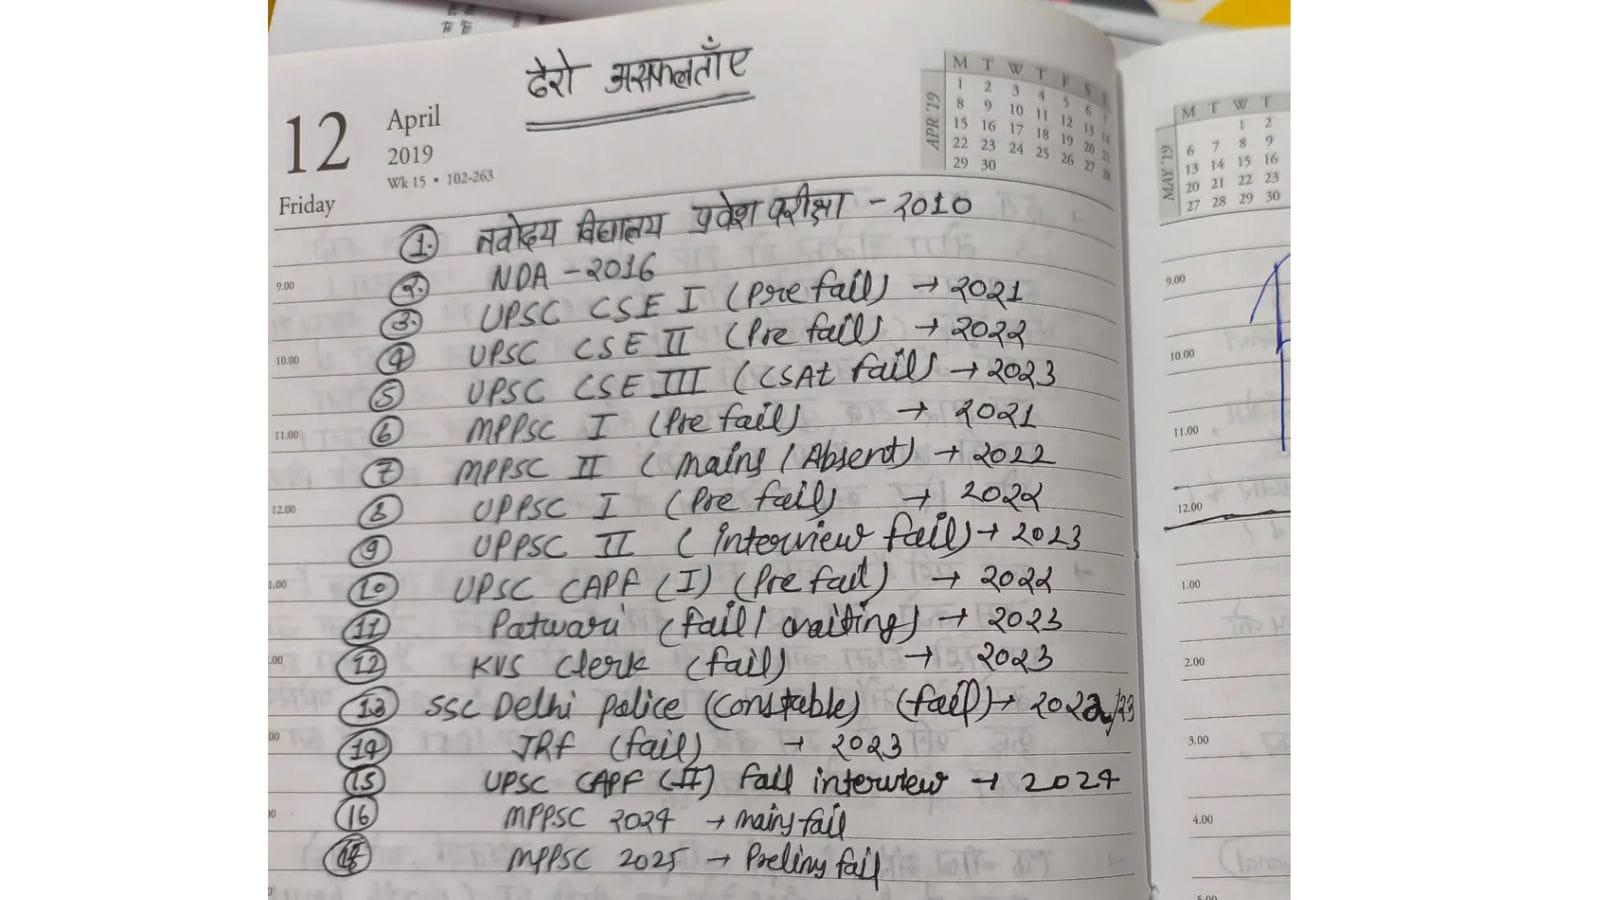 ढेरो असफलताँए
12 April
2019
Wk 15 • 102-263
Friday
APR '19
M T W T F S S
1 2 3 4 5 6 7
8 9 10 11 12 13 14
15 16 17 18 19 20 21
22 23 24 25 26 27 28
29 30
1. नवोदय विद्यालय प्रवेश परीक्षा - 2010
2. NDA - 2016
3. UPSC CSE I (Pre fail) → 2021
4 UPSC CSE II (Pre fail) → 2022
5 UPSC CSE III (CSAt fail) → 2023
6 MPPSC I (Pre fail) → 2021
7 MPPSC II (mains (Absent) → 2022
8 UPPSC I (Pre fail) → 2022
9 UPPSC II (interview fail) → 2023
10 UPSC CAPF (I) (Pre fail) → 2022
11 Patwari (fail/waiting) → 2023
12 KVS Clerk (fail) → 2023
13 SSC Delhi police (constable) (fail) → 2022/23
14 JRF (fail) → 2023
15 UPSC CAPF (II) fail interview → 2024
16 MPPSC 2024 → mains fail
17 MPPSC 2025 → Prelims fail
9.00
10.00
11.00
12.00
1.00
MAY '19
M T W T
1 2
6 7 8 9
13 14 15 16
20 21 22 23
27 28 29 30
9.00
10.00
11.00
12.00
1.00
2.00
3.00
4.00
5.00